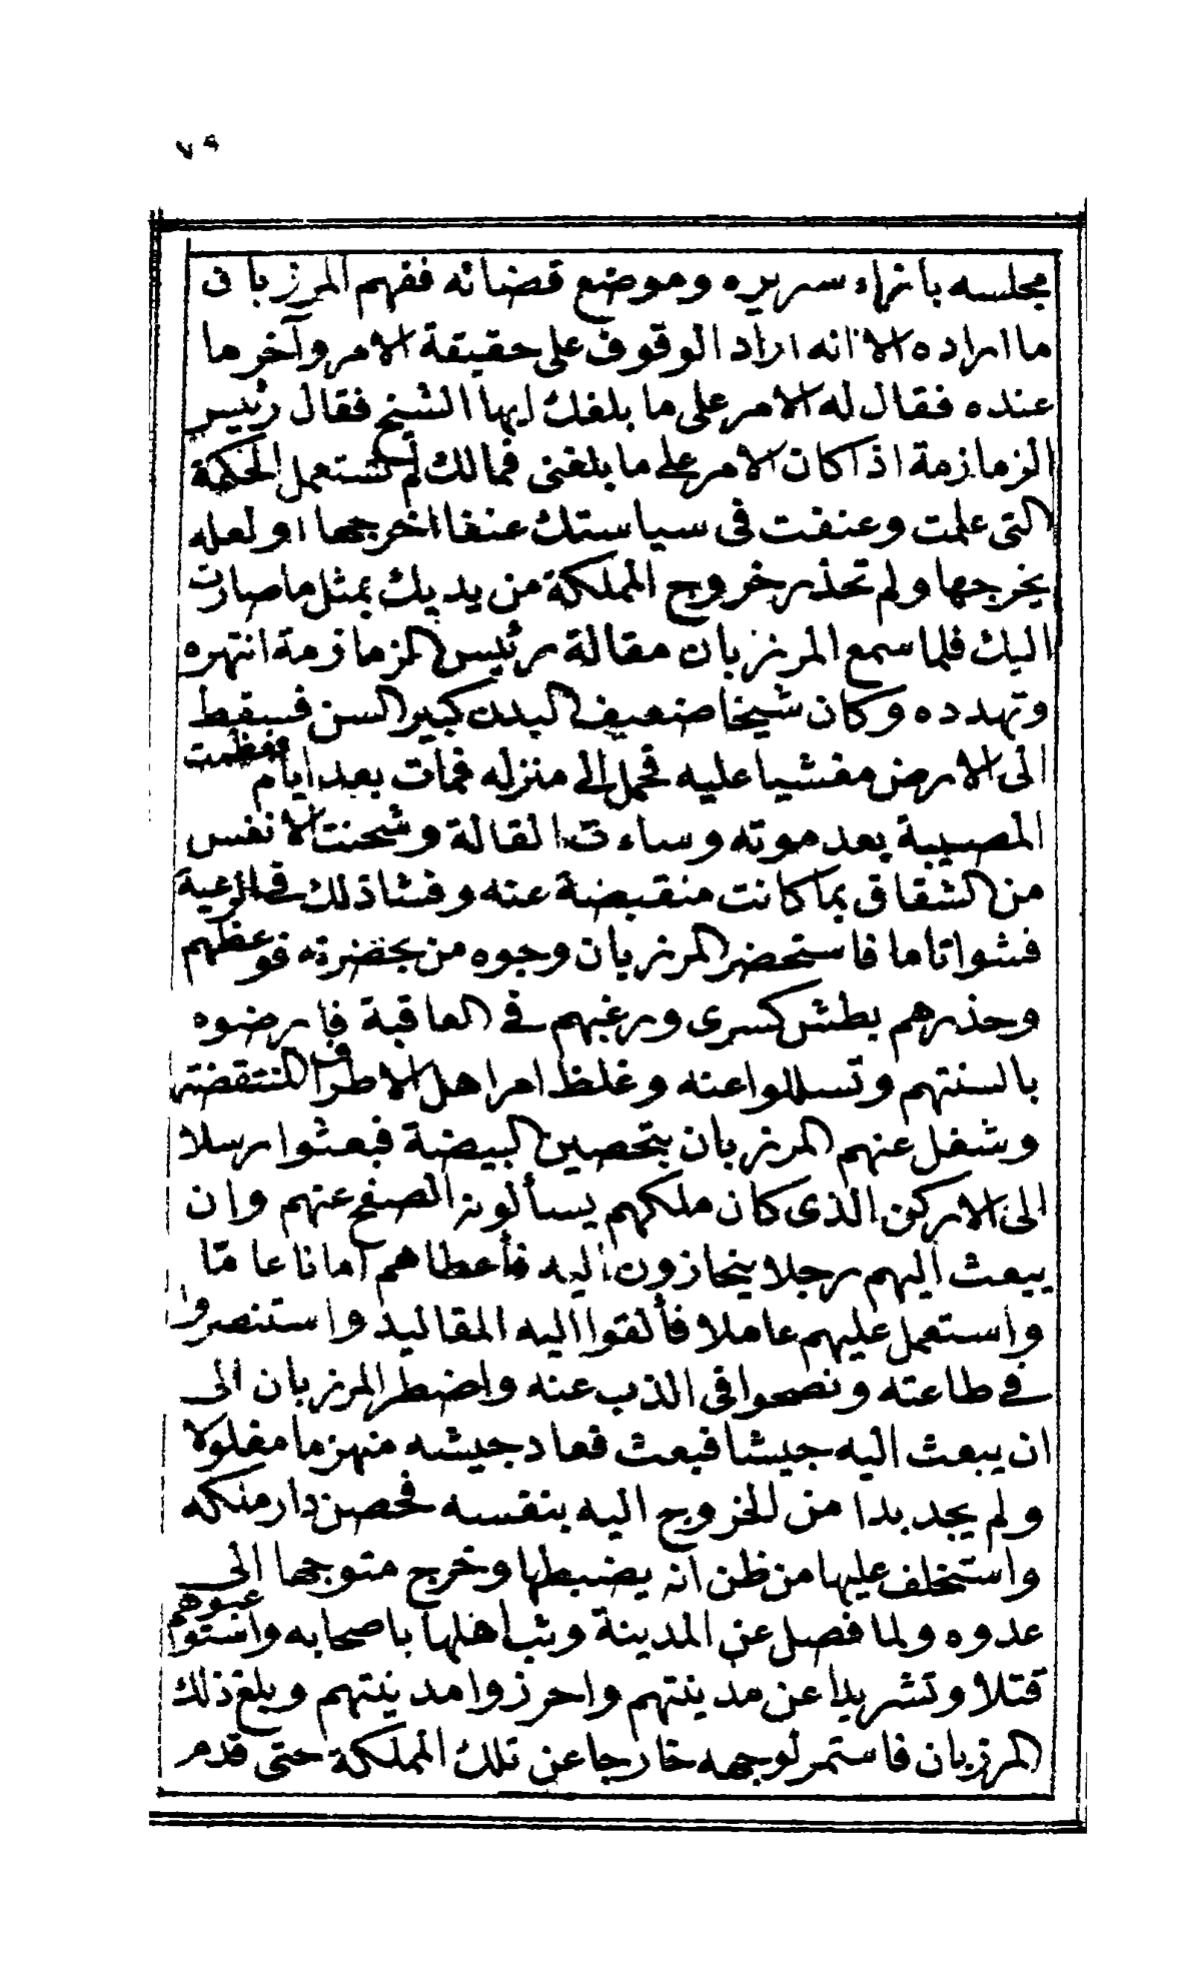 ٧٩
مجلسه بانهاء سريره وموضع قضائه ففهم المرزبان
ما اراده الا انه اراد الوقوف على حقيقة الامر وآخر ما
عنده فقال له الامر على ما بلغك ايها الشيخ فقال رئيس
الزمازمة اذا كان الامر على ما بلغنى فمالك لم تستعمل الحكمة
التى علمت وعنفت فى سياستك عنفا اخرجها او لعله
يخرجها ولم تحذر خروج المملكة من يديك بمثل ما صارت
اليك فلما سمع المرزبان مقالة رئيس الزمازمة انتهره
وتهدده وكان شيخا ضعيف البدن كبير السن فسقط
الى الارض مغشيا عليه فحمل الى منزله فمات بعد ايام فعظمت
المصيبة بعد موته وساءت القالة وشحنت الانفس
من الشقاق بما كانت منقبضة عنه وفشا ذلك فى الرعية
فشوا تاما فاستحضر المرزبان وجوه من بحضرته فوعظهم
وحذرهم بطش كسرى ورغبهم فى العاقبة فارضوه
بالسنتهم وتسللوا عنه وغلظ امر اهل الاطراف المنتقضة
وشغل عنهم المرزبان بتحصين البيضة فبعثوا رسلا
الى الاركن الذى كان ملكهم يسألونه الصفح عنهم وان
يبعث اليهم رجلا ينحازون اليه فأعطاهم امانا عامّا
واستعمل عليهم عاملا فألقوا اليه المقاليد واستنصروا
فى طاعته ونصحوا فى الذب عنه واضطر المرزبان الى
ان يبعث اليه جيشا فبعث فعاد جيشه منهزما مفلولا
ولم يجد بدا من الخروج اليه بنفسه فحصن دار ملكه
واستخلف عليها من ظن انه يضبطها وخرج متوجها الى
عدوه ولما فصل عن المدينة وثب اهلها باصحابه واستوعبوهم
قتلا وتشريدا عن مدينتهم واحرزوا مدينتهم وبلغ ذلك
المرزبان فاستمر لوجهه خارجا عن تلك المملكة حتى قدم